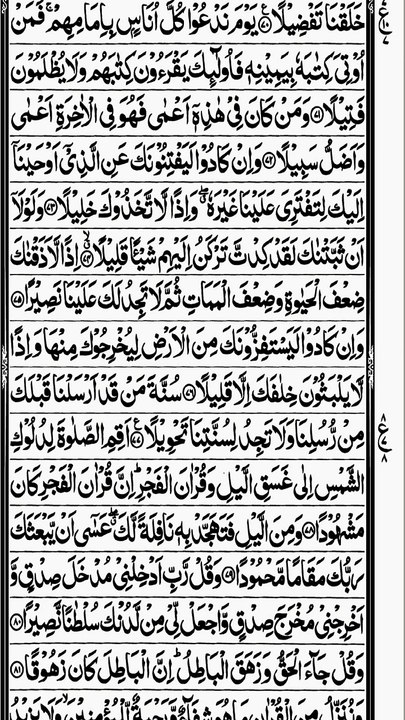 خَلَقْنَا تَفْضِيْلًا ﴿۷۰﴾ يَوْمَ نَدْعُوْا كُلَّ اُنَاسٍۭ بِاِمَامِهِمْ ۚ فَمَنْ
اُوْتِيَ كِتٰبَهٗ بِيَمِيْنِهٖ فَاُولٰٓئِكَ يَقْرَءُوْنَ كِتٰبَهُمْ وَلَا يُظْلَمُوْنَ
فَتِيْلًا ﴿۷۱﴾ وَمَنْ كَانَ فِيْ هٰذِهٖٓ اَعْمٰى فَهُوَ فِي الْاٰخِرَةِ اَعْمٰى
وَاَضَلُّ سَبِيْلًا ﴿۷۲﴾ وَاِنْ كَادُوْا لَيَفْتِنُوْنَكَ عَنِ الَّذِيْٓ اَوْحَيْنَآ
اِلَيْكَ لِتَفْتَرِيَ عَلَيْنَا غَيْرَهٗ ۖ وَاِذًا لَّاتَّخَذُوْكَ خَلِيْلًا ﴿۷۳﴾ وَلَوْلَآ
اَنْ ثَبَّتْنٰكَ لَقَدْ كِدْتَّ تَرْكَنُ اِلَيْهِمْ شَيْـًٔا قَلِيْلًا ﴿۷۴﴾ اِذًا لَّاَذَقْنٰكَ
ضِعْفَ الْحَيٰوةِ وَضِعْفَ الْمَمَاتِ ثُمَّ لَا تَجِدُ لَكَ عَلَيْنَا نَصِيْرًا ﴿۷۵﴾
وَاِنْ كَادُوْا لَيَسْتَفِزُّوْنَكَ مِنَ الْاَرْضِ لِيُخْرِجُوْكَ مِنْهَا وَاِذًا
لَّا يَلْبَثُوْنَ خِلٰفَكَ اِلَّا قَلِيْلًا ﴿۷۶﴾ سُنَّةَ مَنْ قَدْ اَرْسَلْنَا قَبْلَكَ
مِنْ رُّسُلِنَا وَلَا تَجِدُ لِسُنَّتِنَا تَحْوِيْلًا ﴿۷۷﴾ اَقِمِ الصَّلٰوةَ لِدُلُوْكِ
الشَّمْسِ اِلٰى غَسَقِ الَّيْلِ وَقُرْاٰنَ الْفَجْرِ ۭ اِنَّ قُرْاٰنَ الْفَجْرِ كَانَ
مَشْهُوْدًا ﴿۷۸﴾ وَمِنَ الَّيْلِ فَتَهَجَّدْ بِهٖ نَافِلَةً لَّكَ ۖ عَسٰٓى اَنْ يَّبْعَثَكَ
رَبُّكَ مَقَامًا مَّحْمُوْدًا ﴿۷۹﴾ وَقُلْ رَّبِّ اَدْخِلْنِيْ مُدْخَلَ صِدْقٍ وَّ
اَخْرِجْنِيْ مُخْرَجَ صِدْقٍ وَّاجْعَلْ لِّيْ مِنْ لَّدُنْكَ سُلْطٰنًا نَّصِيْرًا ﴿۸۰﴾
وَقُلْ جَآءَ الْحَقُّ وَزَهَقَ الْبَاطِلُ ۭ اِنَّ الْبَاطِلَ كَانَ زَهُوْقًا ﴿۸۱﴾
وَنُنَزِّلُ مِنَ الْقُرْاٰنِ مَا هُوَ شِفَآءٌ وَّرَحْمَةٌ لِّلْمُؤْمِنِيْنَ ۙ وَلَا يَزِيْدُ